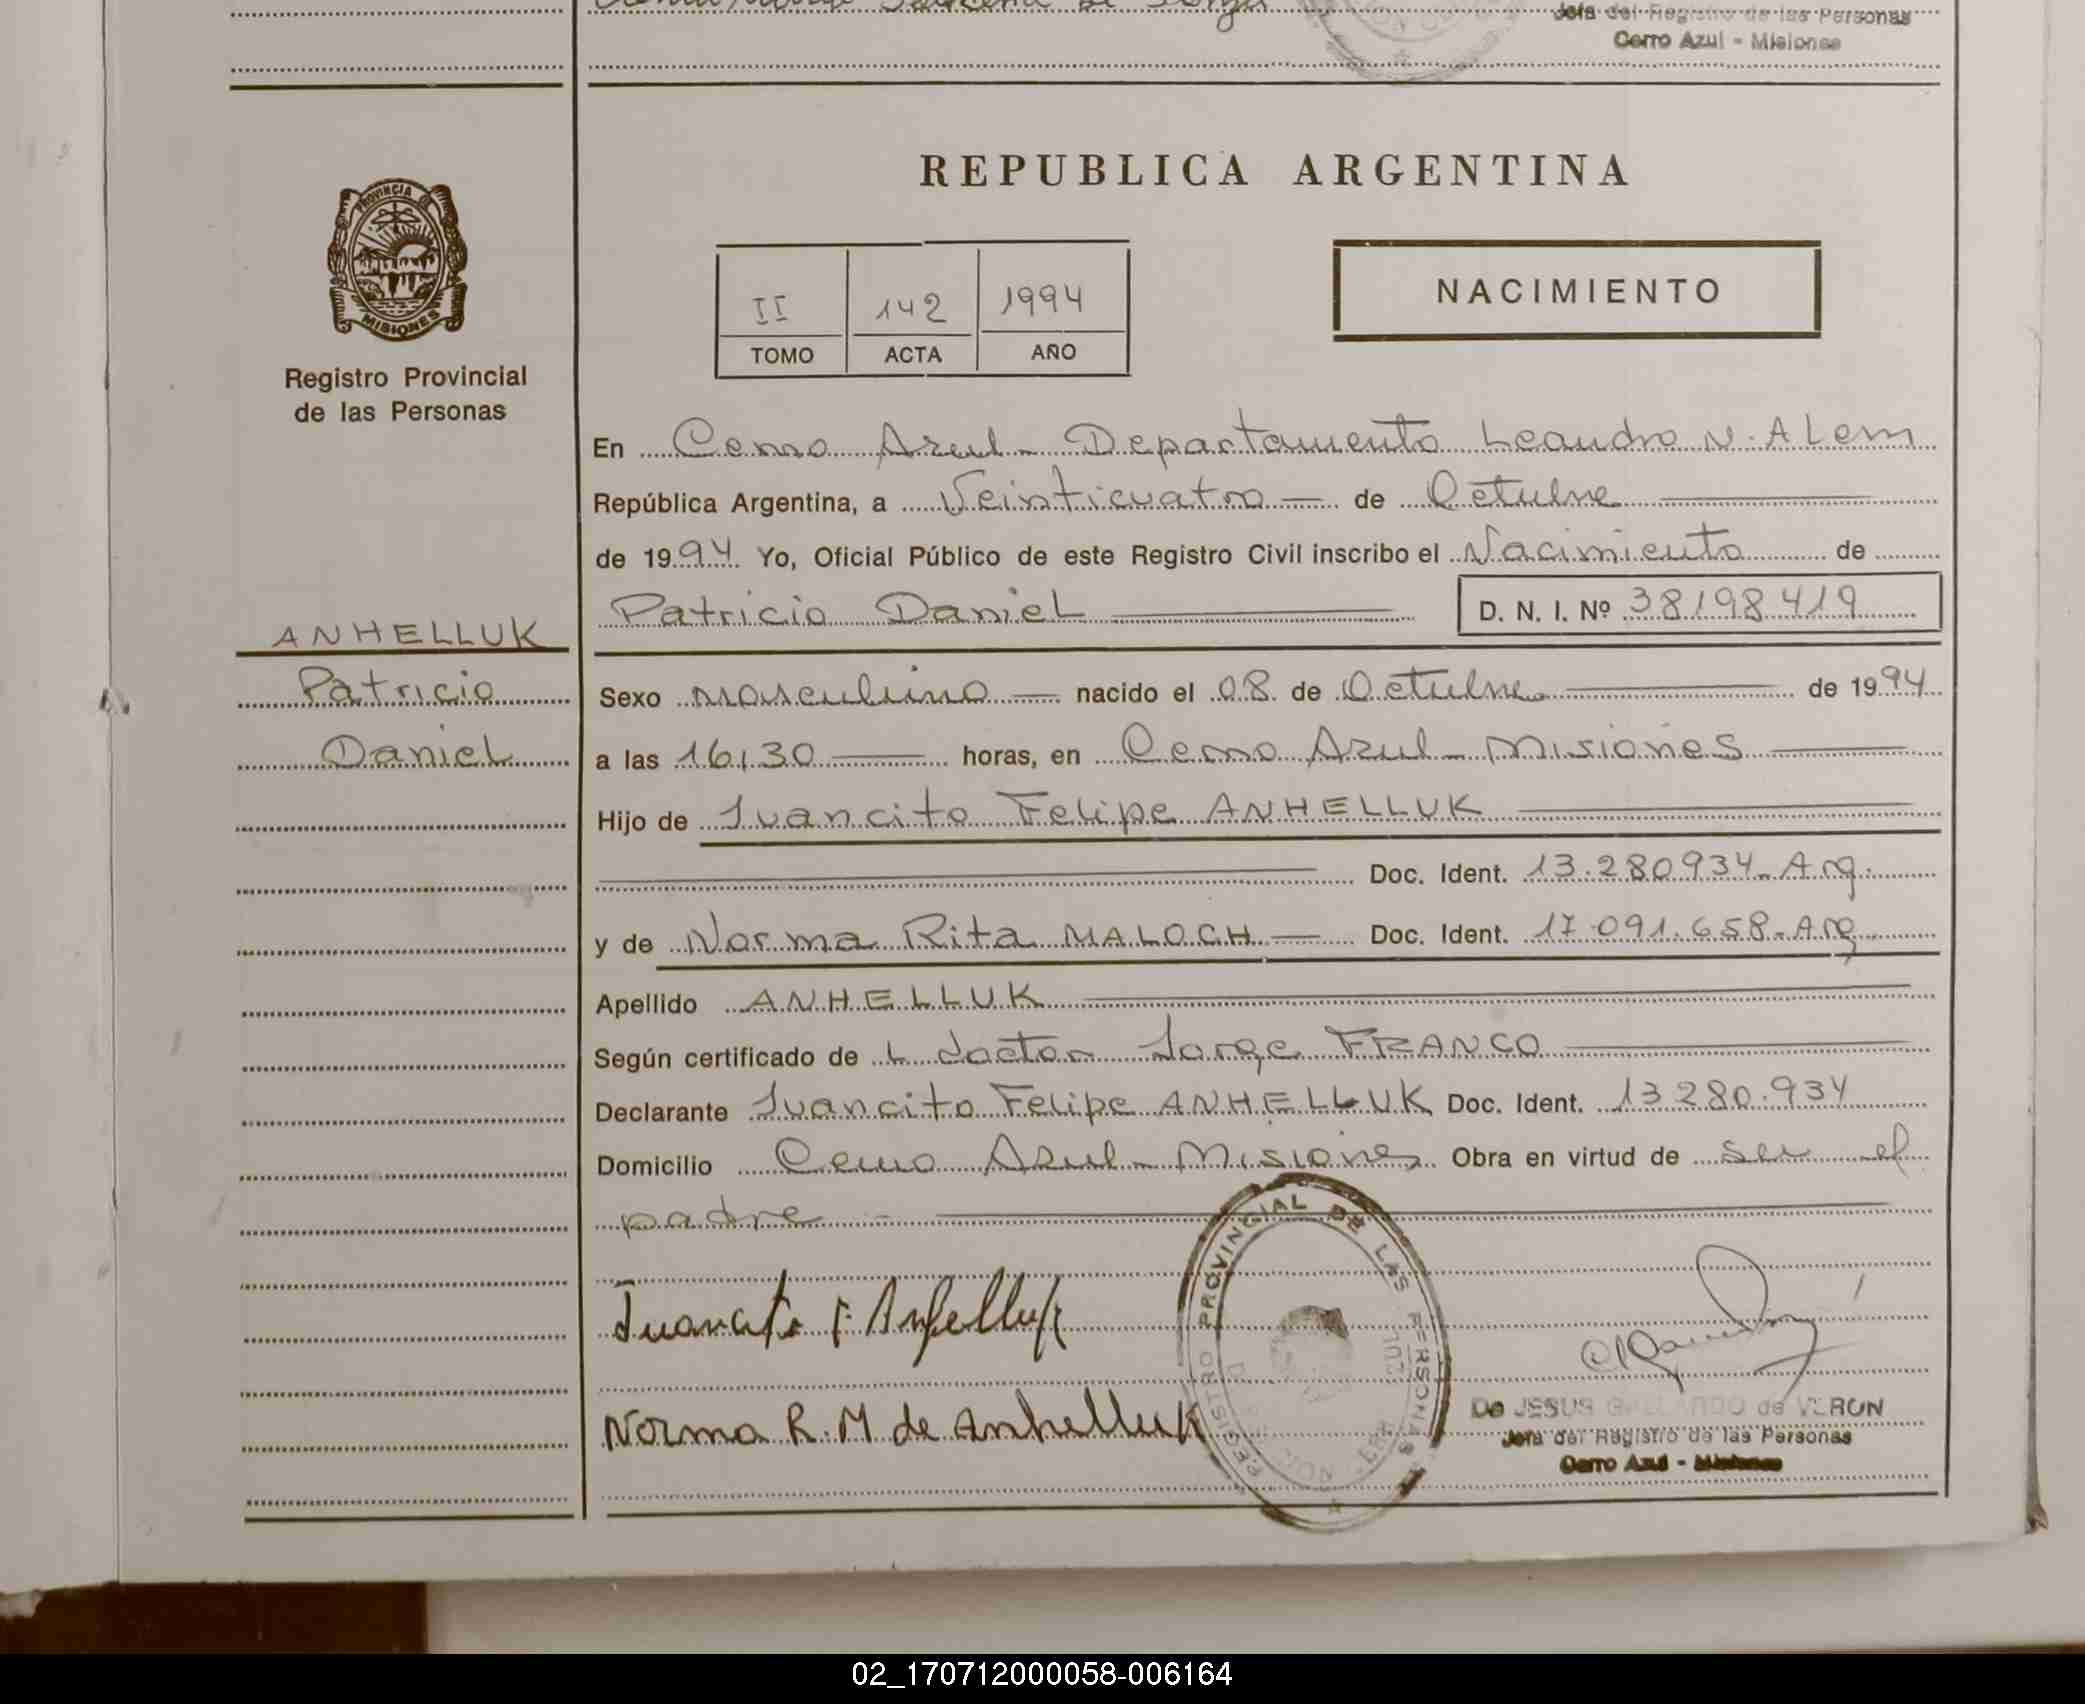 Jefa del Registro de las Personas
Cerro Azul - Misiones
PROVINCIA DE
MISIONES
Registro Provincial
de las Personas
REPUBLICA ARGENTINA
II 142 1994
TOMO ACTA AÑO
NACIMIENTO
En Cerro Azul - Departamento Leandro N. ALem
República Argentina, a Veinticuatro de Octubre
de 1994 Yo, Oficial Público de este Registro Civil inscribo el Nacimiento de
Patricio Daniel D. N. I. Nº 38198419
ANHELLUK
Patricio
Daniel
Sexo masculino nacido el 08 de Octubre de 1994
a las 16,30 horas, en Cerro Azul - Misiones
Hijo de Juancito Felipe ANHELLUK
Doc. Ident. 13.280934- Arg.
y de Norma Rita MALOCH Doc. Ident. 17.091.658- Arg
Apellido ANHELLUK
Según certificado de L doctor Jorge FRANCO
Declarante Juancito Felipe ANHELLUK Doc. Ident. 13280.934
Domicilio Cerro Azul - Misiones Obra en virtud de ser el
padre -
Juancito F. Anhelluk
Norma R. M de Anhelluk
REGISTRO PROVINCIAL DE LAS PERSONAS
De JESUS GALLARDO de VERON
Jefa del Registro de las Personas
Cerro Azul - Misiones
02_170712000058-006164